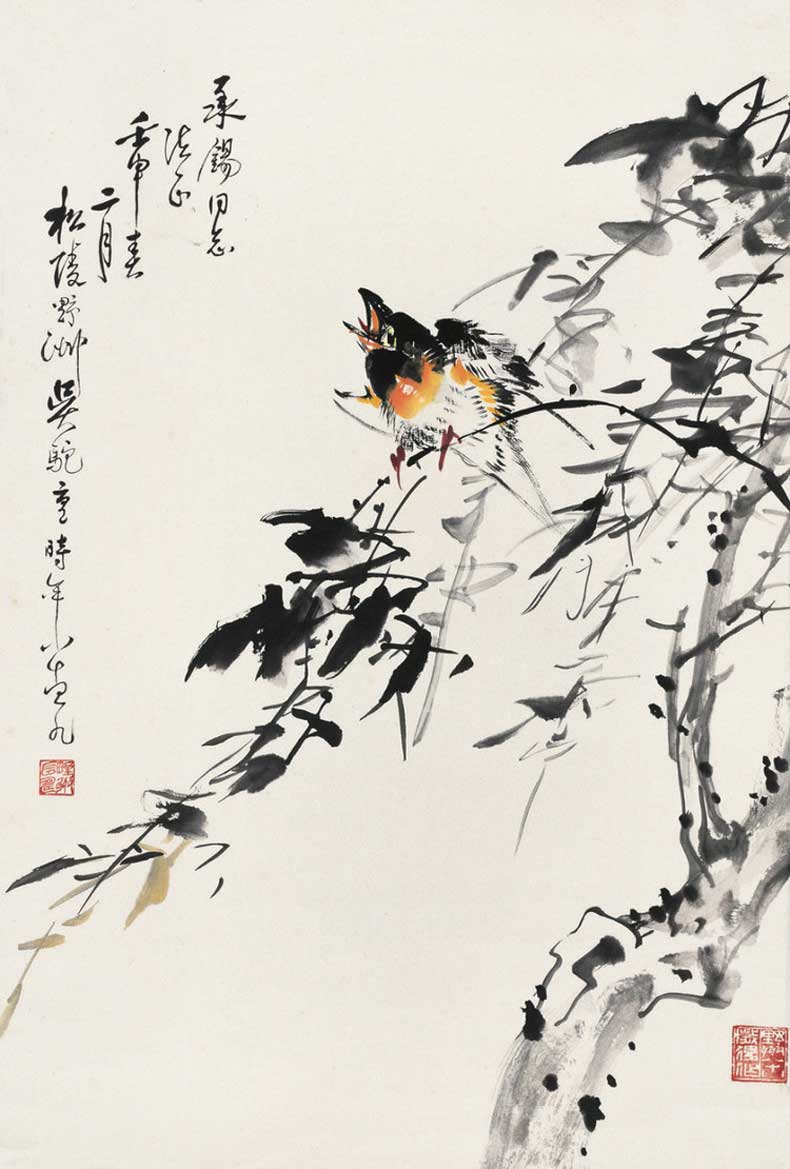 承錫同志
法正
壬申春
二月
松陵野洲吳駝 時年八十有九